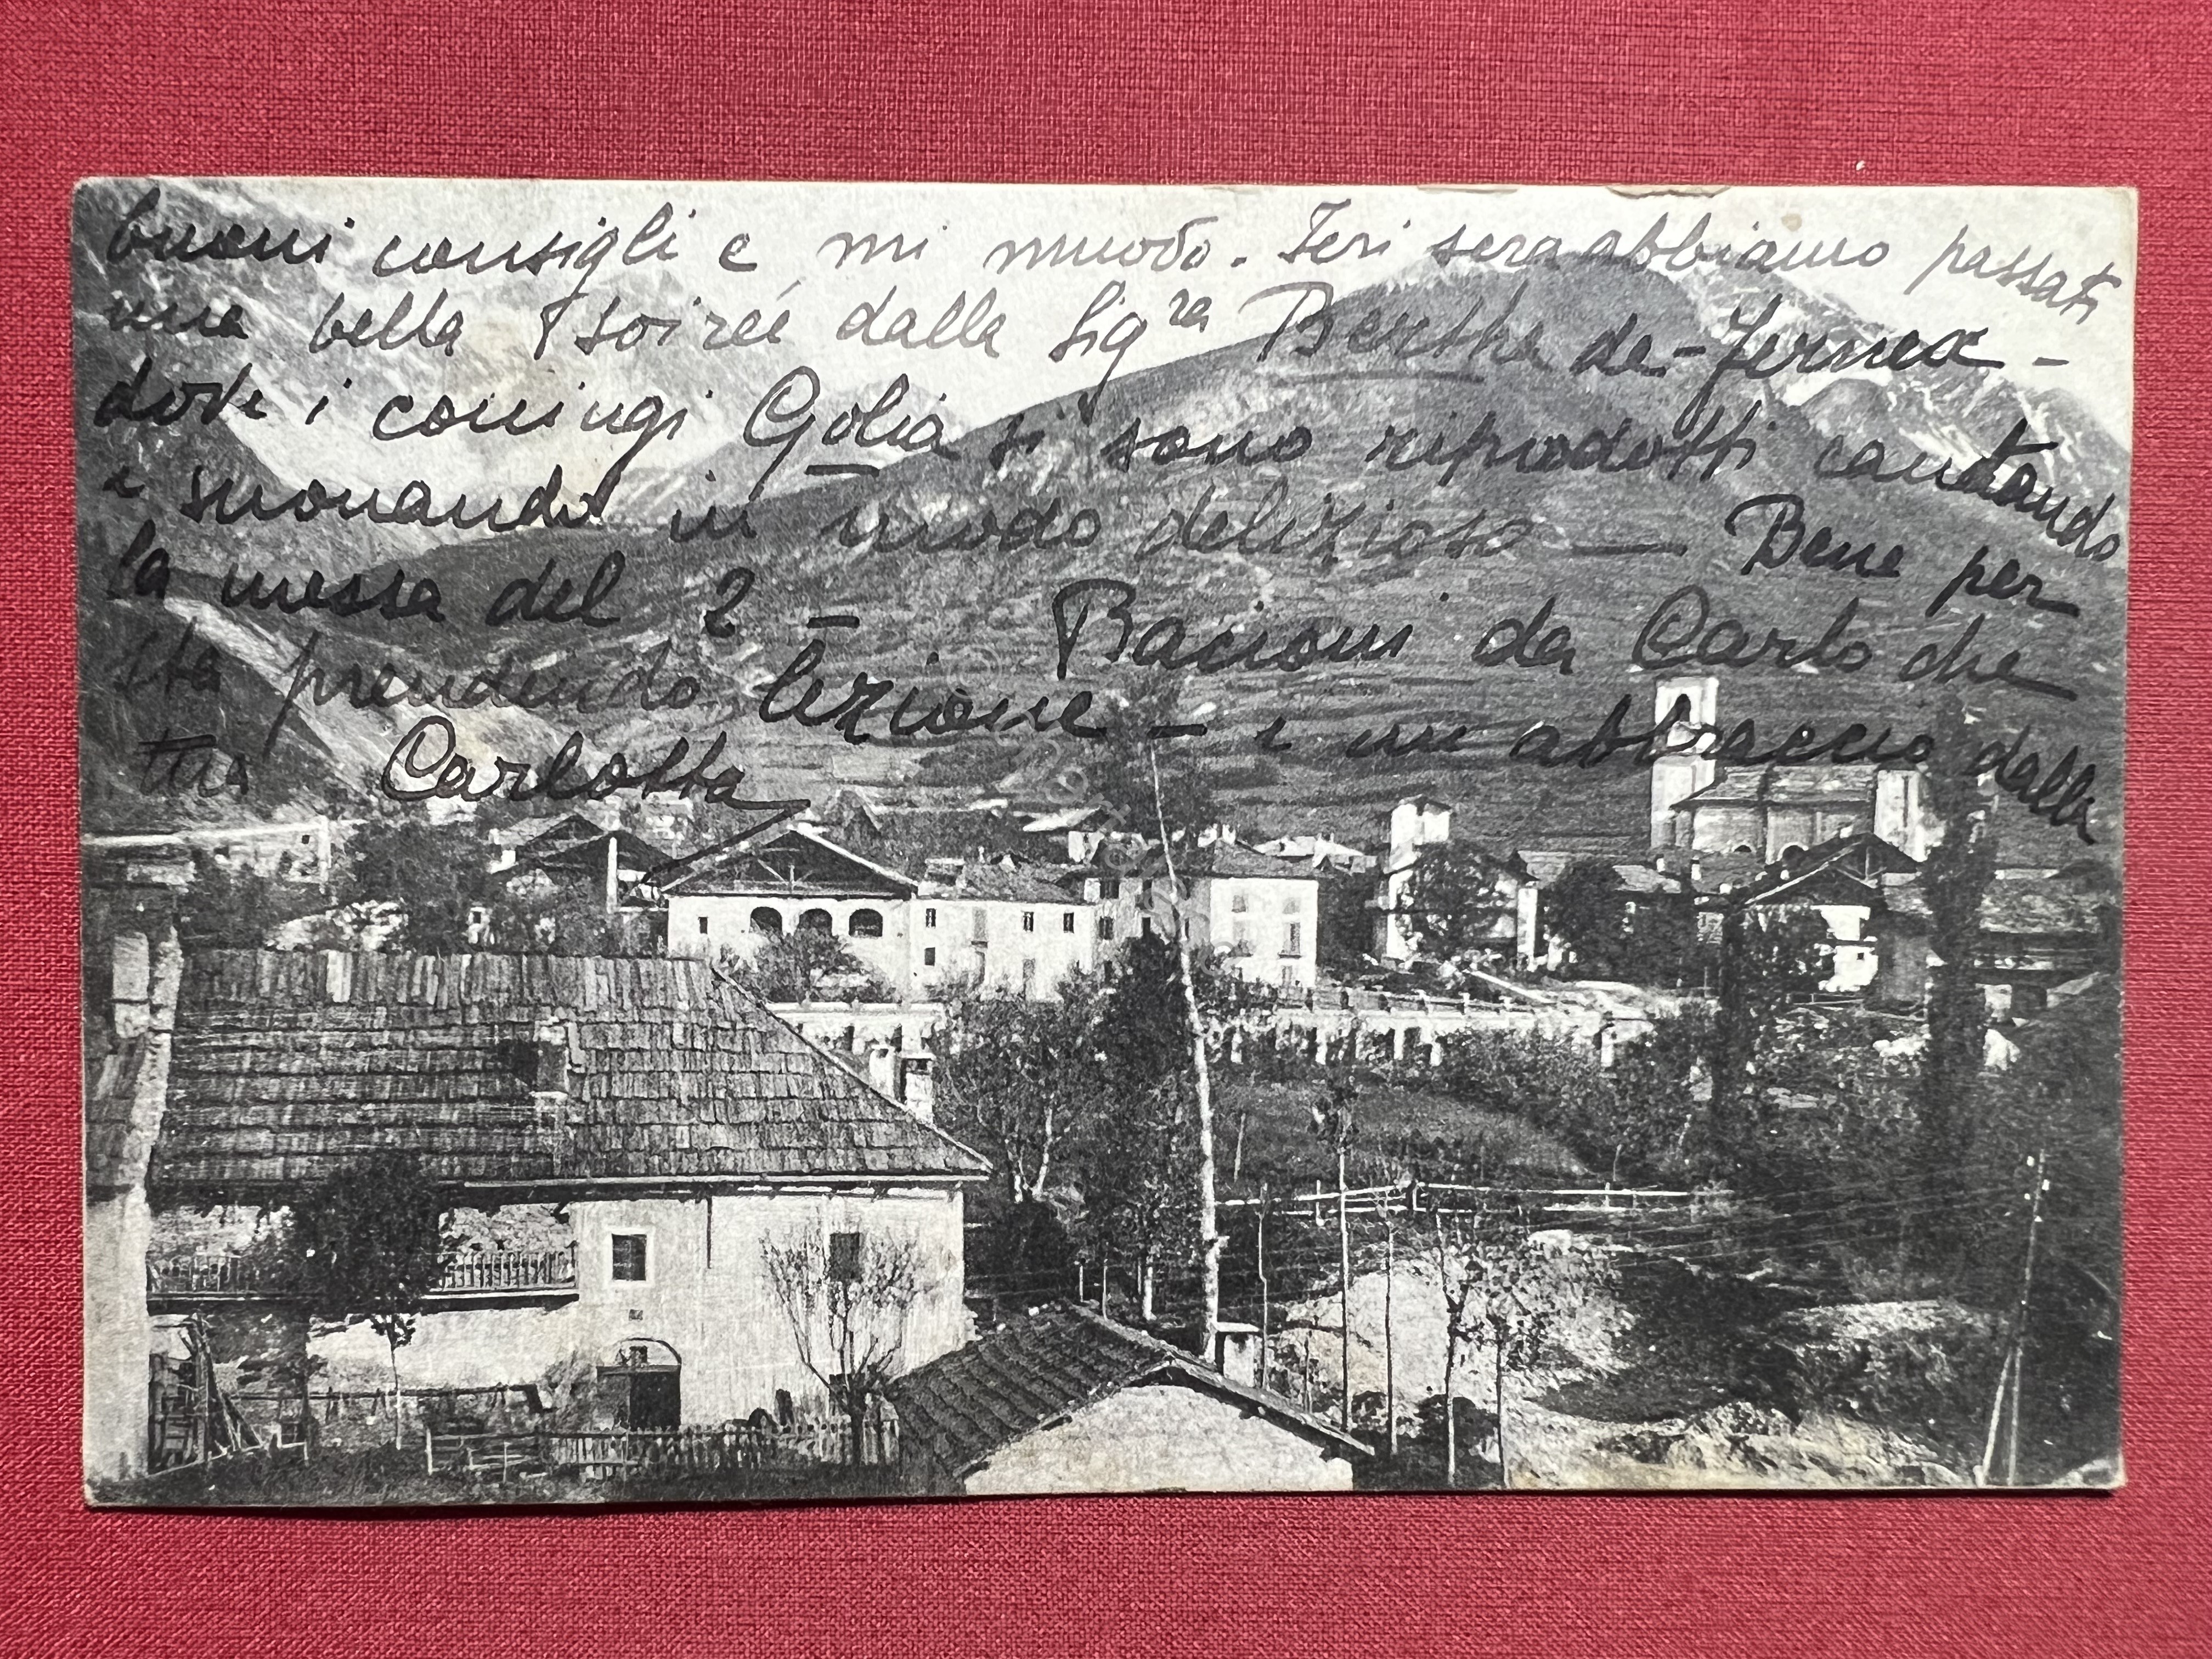 buoni consigli e mi muovo. Ieri sera abbiamo passati
una bella soirée dalla Sigra Berthe de-Fernex -
dove i coniugi Golia si sono riprodotti cantando
e suonando in modo delizioso — Bene per
la messa del 2 — Bacioni da Carlo che
sta prendendo lezione — e un abbraccio dalla
tua Carlotta